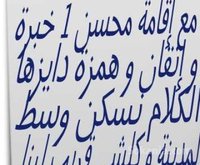 مع إقامة محسن 1 خبرة
و إتقان و همزه دايزها
الكلام نسكن وسط
لمدينة